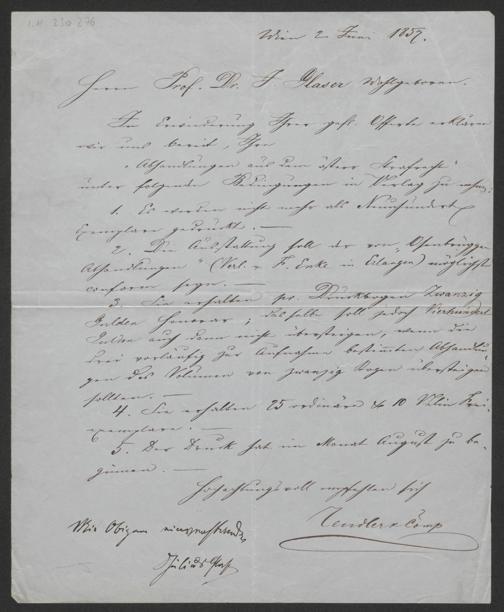 I.N. 230.276
Wien 2 Juni 1857.
Herrn Prof. Dr. J. Glaser Wohlgeboren.
In Erwiederung Ihrer gefl. Offerte erklären
wir uns bereit, Ihre
"Abhandlungen aus dem österr. Strafrecht"
unter folgenden Bedingungen in Verlag zu nehmen.
1. Es werden nicht mehr als Neunhundert
Exemplare gedruckt. —
2. Die Ausstattung soll der von "Osenbrüggen
Abhandlungen" (Verl. v. F. Enke in Erlangen) möglichst
conform seyn. —
3. Sie erhalten pr. Druckbogen Zwanzig
Gulden Honorar; dasselbe soll jedoch Vierhundert
Gulden auch dann nicht übersteigen, wenn die
drei vorläufig zur Aufnahme bestimmten Abhandlun-
gen das Volumen von zwanzig Bogen übersteigen
sollten. —
4. Sie erhalten 25 ordinäre & 10 Velin Frei-
exemplare. —
5. Der Druck hat im Monat August zu be-
ginnen. —
Hochachtungsvoll empfehlen sich
Tendler & Comp
Mit Obigem einverstanden
Julius Glaser